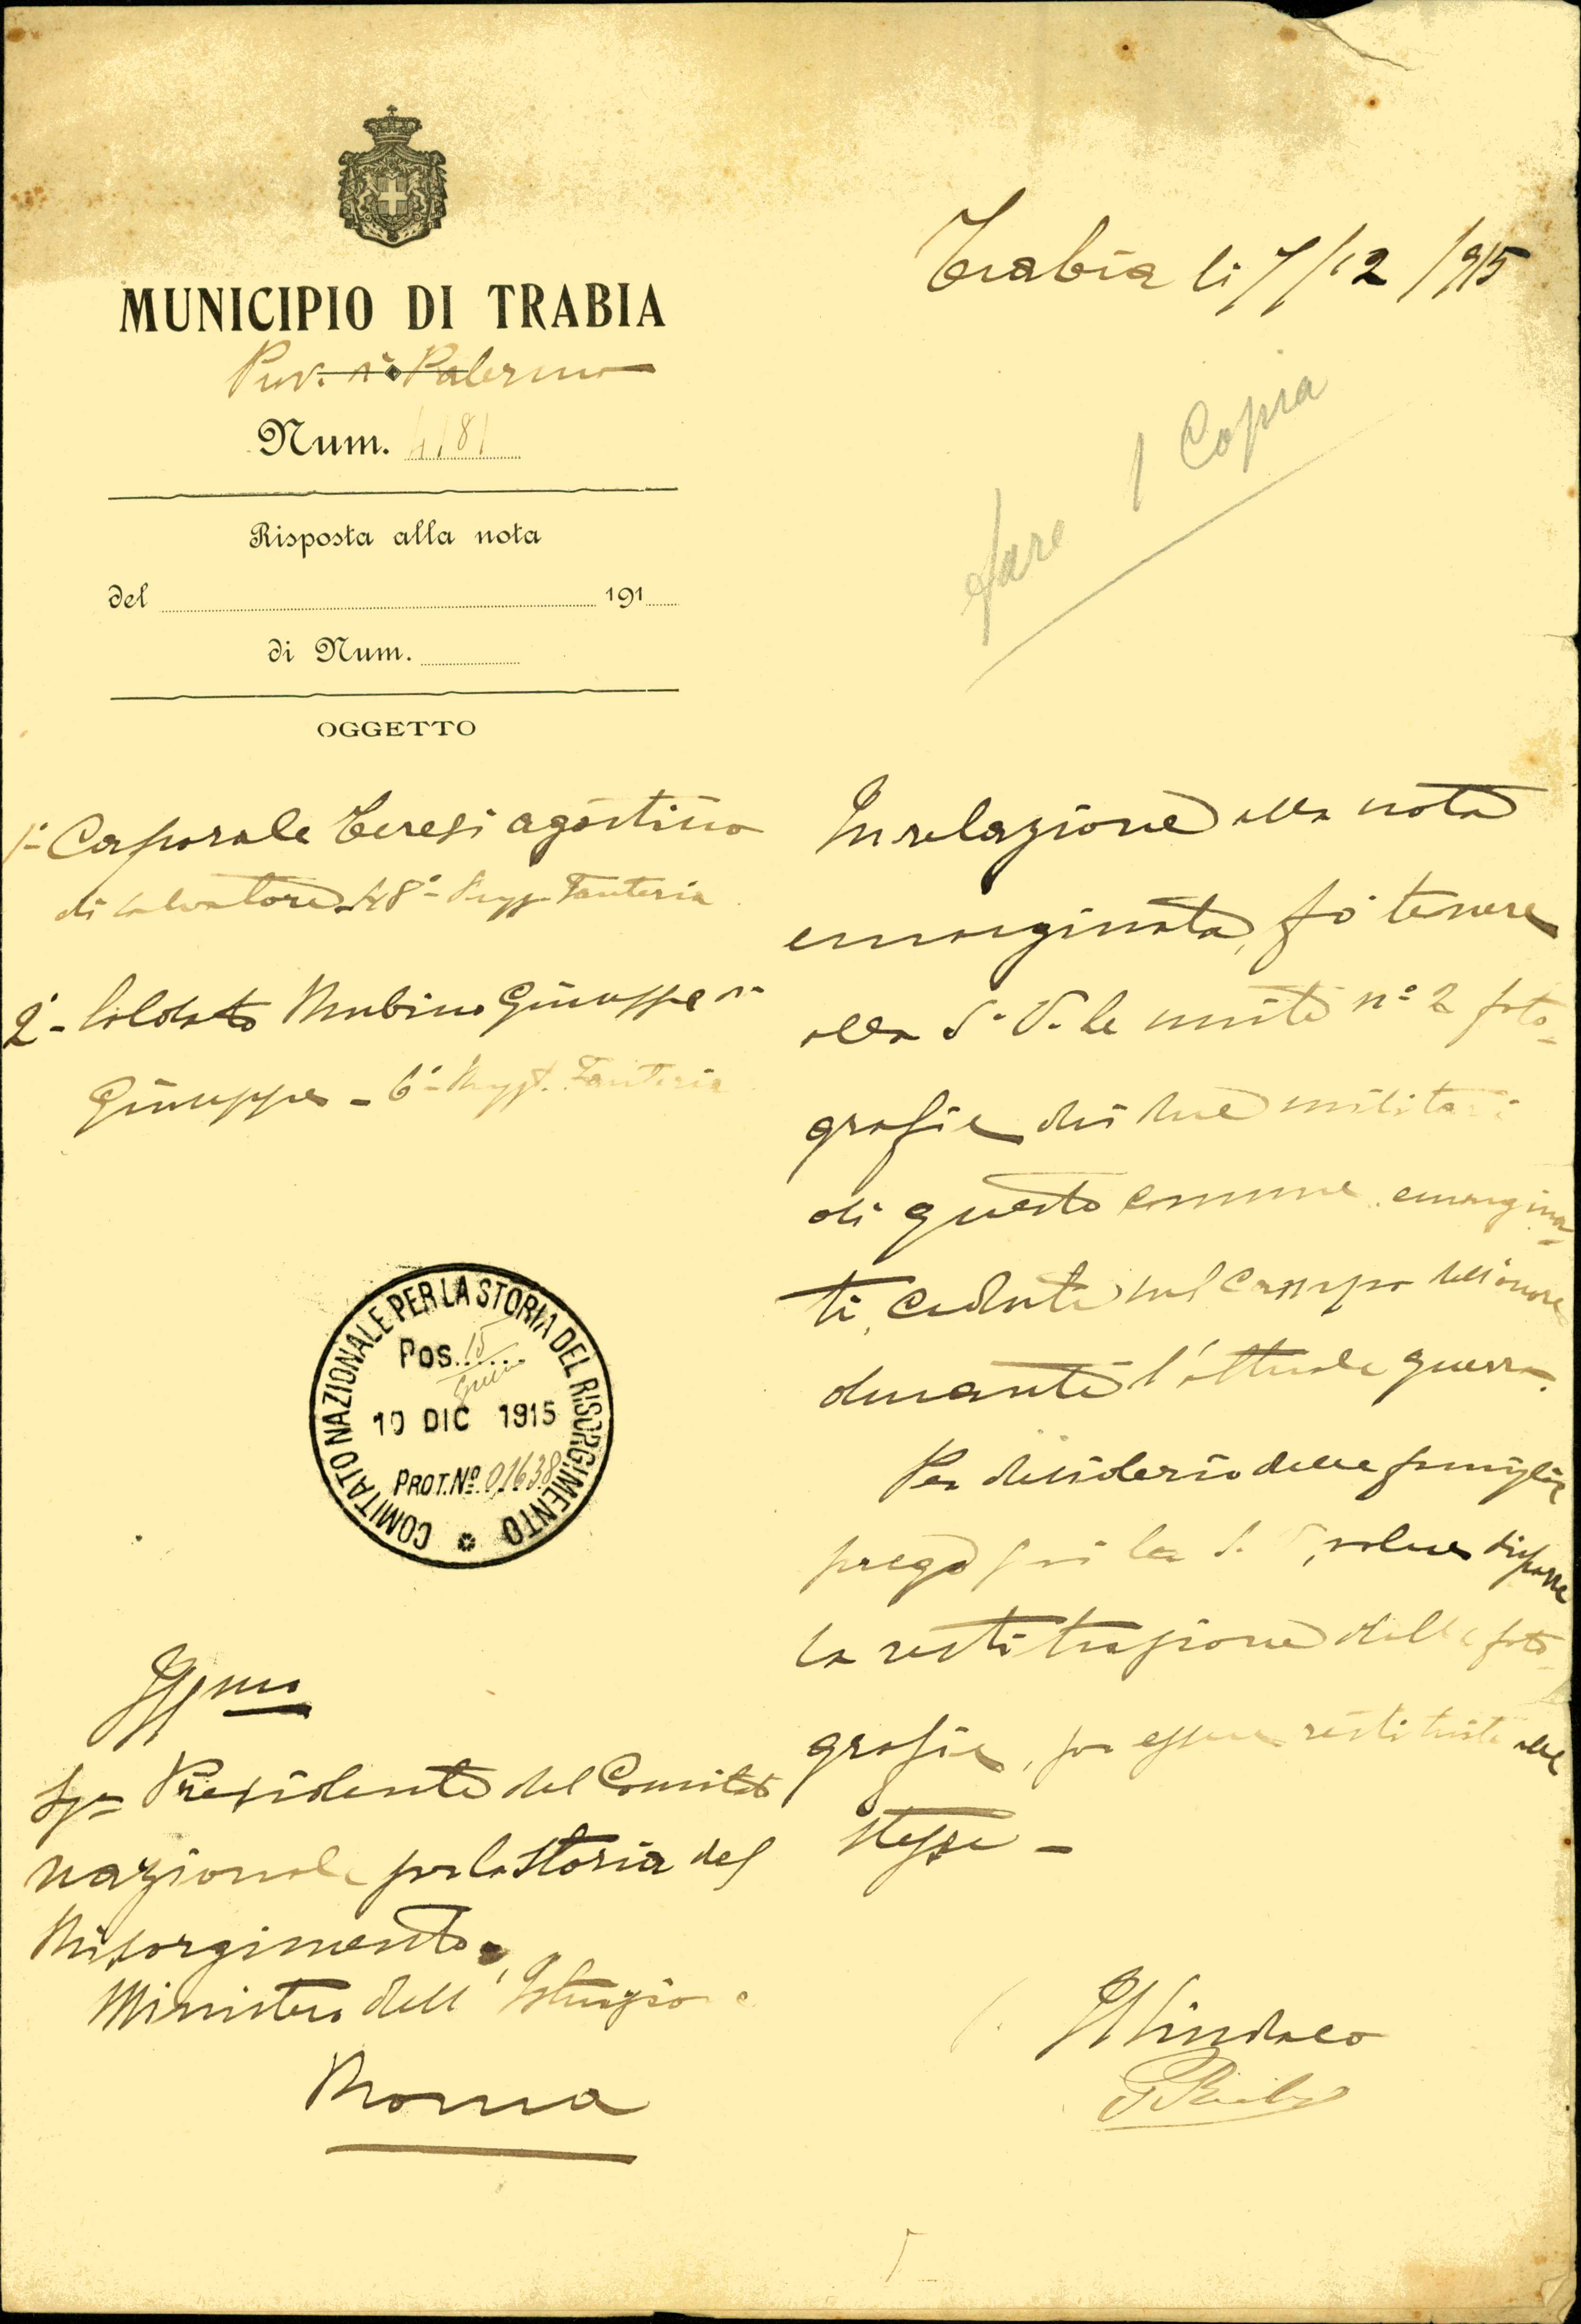 MUNICIPIO DI TRABIA
Prov. di Palermo
Num. 4181
Risposta alla nota
del 191
di Num.
OGGETTO
1° Caporale Teresi Agostino
di Salvatore 48° Regg. Fanteria
2° - Soldato Rubino Giuseppe di
Giuseppe - 6° Regg. Fanteria
COMITATO NAZIONALE PER LA STORIA DEL RISORGIMENTO
Pos. 15
10 DIC 1915
PROT. No. 01638
Ill mo
Sigr Presidente del Comitato
nazionale per la Storia del
Risorgimento
Ministero dell' Istruzione
Roma
Trabia li 7/12/915
fare 1 Copia
In relazione alla nota
emarginata, fo tenere
alla S. V. le unite n° 2 foto-
grafie dei due militari
di questo comune emargina-
ti, caduti sul campo dell'onore
durante l'attuale guerra.
Per desiderio delle famiglie
prego la S. V. disporre
la restituzione delle foto-
grafie, per essere restituite alle
stesse -
Il Sindaco